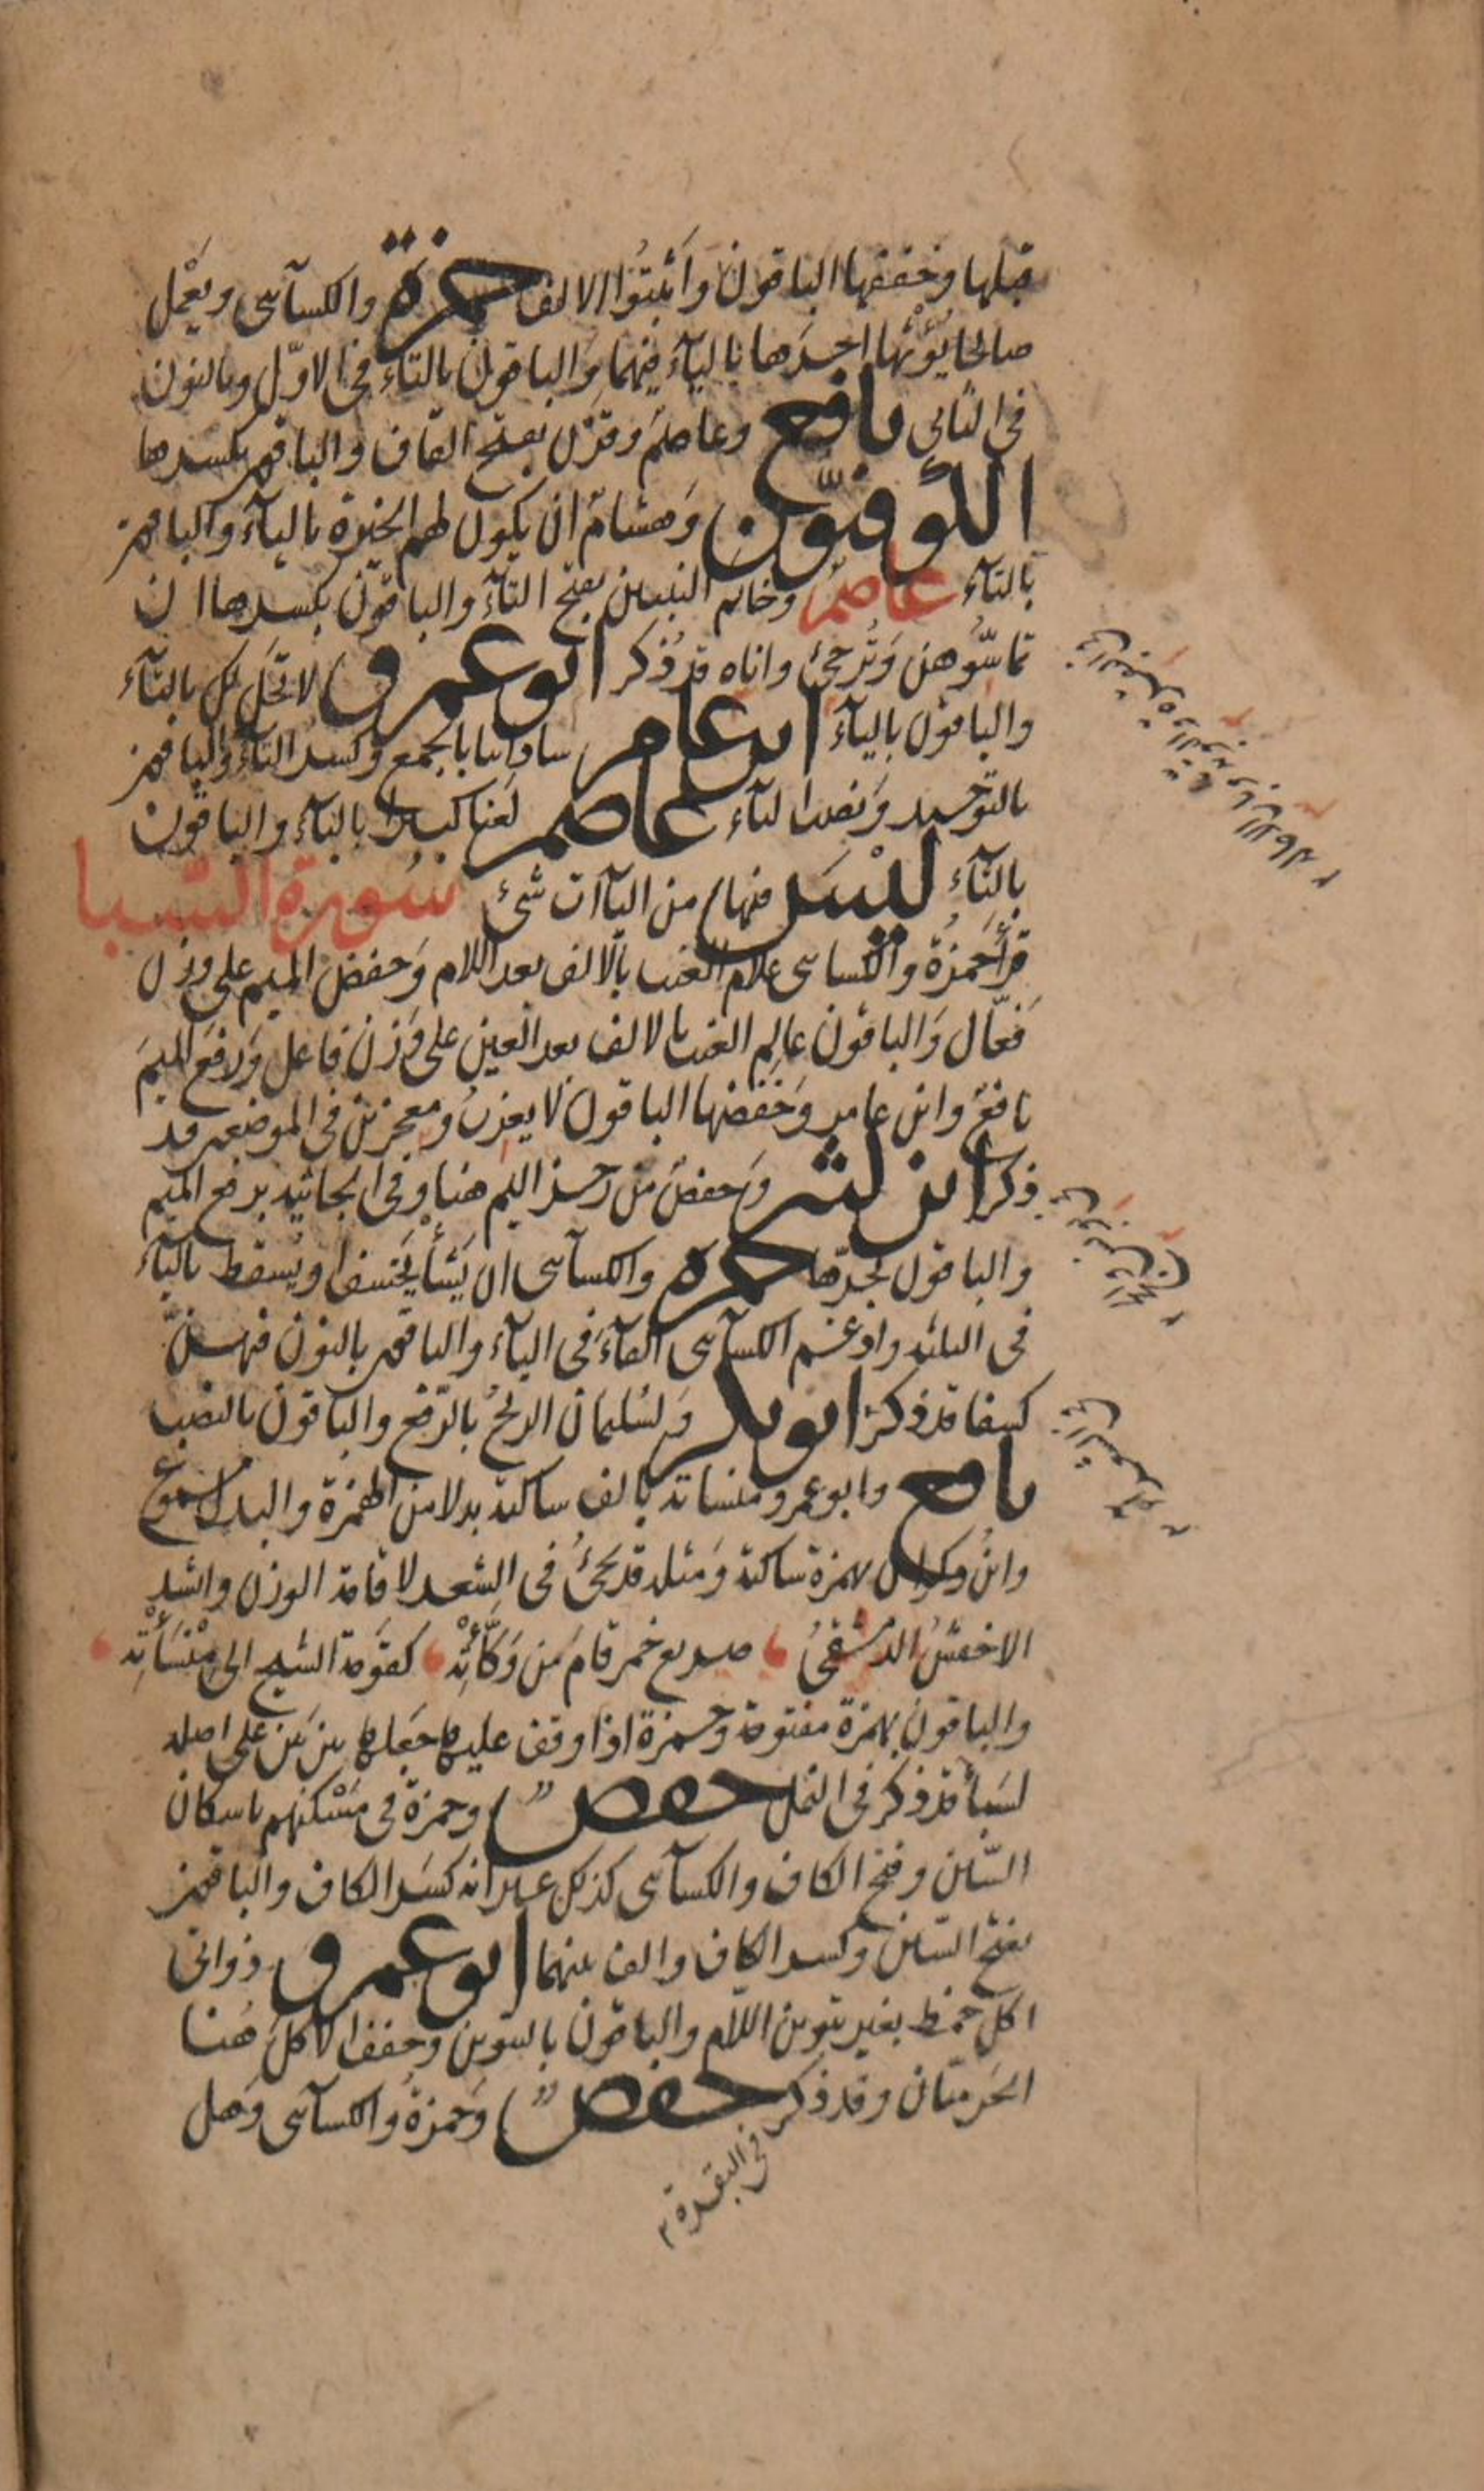 قبلها وخففها الباقون واَثبتُوا الالف حمزة والكسآئى ويَعْمل
صالحا يُؤْتها اجرَها باليآءِ فيهما وَالباقون بالتآءِ فى الاوّل وبالنون
فى الثانى نافع وعاصمٌ وقرْن بفتح القاف والباقون بكسرها
الكوفيّون وَهشامٌ ان يكون لهم الخيرة باليآءِ والباقون
بالتآء عاصمٌ وخاتم النبيين بفتح التآءِ والباقون بكسرها ان
تماسّوهن وَتُرجئ واناه قد ذُكر ابو عمرو لا تحَل لك بالتآء
والباقون باليآء ابن عامر ساداتنا بالجمع وكسر التآء والباقون
بالتوحيد وَنصب التآء عاصم لَعنا كبيرا بالبآء والباقون
بالثآء ليْسَ فيها من اليآات شئ سُورة السبا
قرأ حَمزةُ والكسائى علام الغيب بالالف بعد اللام وَخفض الميم على وزن
فَعّال وَالباقون عالِم الغيب بالالف بعد العين على وَزن فاعل وَرفعَ الميمَ
نافعٌ وابن عامر وَخَفَضها الباقون لا يعزبُ ومعجزين فى الموضعين قد
ذكر ابن كثير وَحفصٌ من رجز اليم هنا وَفى الجاثيه برفع الميم
والباقون بجرّها حمزة والكسآئى ان يَشأْ يَخسف او يُسقط باليآء
فى الثلثه وادغم الكسآئى الفآءَ فى البآء والباقون بالنون فيهنّ
كسفا قد ذكر ابو بكر وَلسُليمان الريحُ بالرّفع والباقون بالنصب
نافع وابو عمرو منساته بالف ساكنة بدلا من الهمزة والبدل مسموع
وابنُ ذكوان بهمزة ساكنة وَمثله قد يَجئُ فى الشعر لاقامة الوزن وانشد
الاخفشُ الدمشقىُ صريع خمر قامَ مِن وَكْأَتِهْ كقوَمة الشيخ الى مِنْسَأْتِه
والباقون بهمزة مفتوحة وحمزة اذا وقف عليها جعلها بين بَين على اصله
لسَبأ قد ذكر فى النمل حفصٌ وحمزة فى مَسْكنهم باسكان
السّين وفتح الكاف والكسآئى كذلك غير انه كسَر الكاف والباقون
بفتح السّين وكسر الكاف والف بينهما ابو عمرو ذواتى
اكل خمط بغير تنوين اللام والباقون بالتنوين وخفف الاكلَ هُنا
الحَرميّان وقد ذكر حفصٌ وَحمزةُ والكسآئى وَهل
فى البقرة